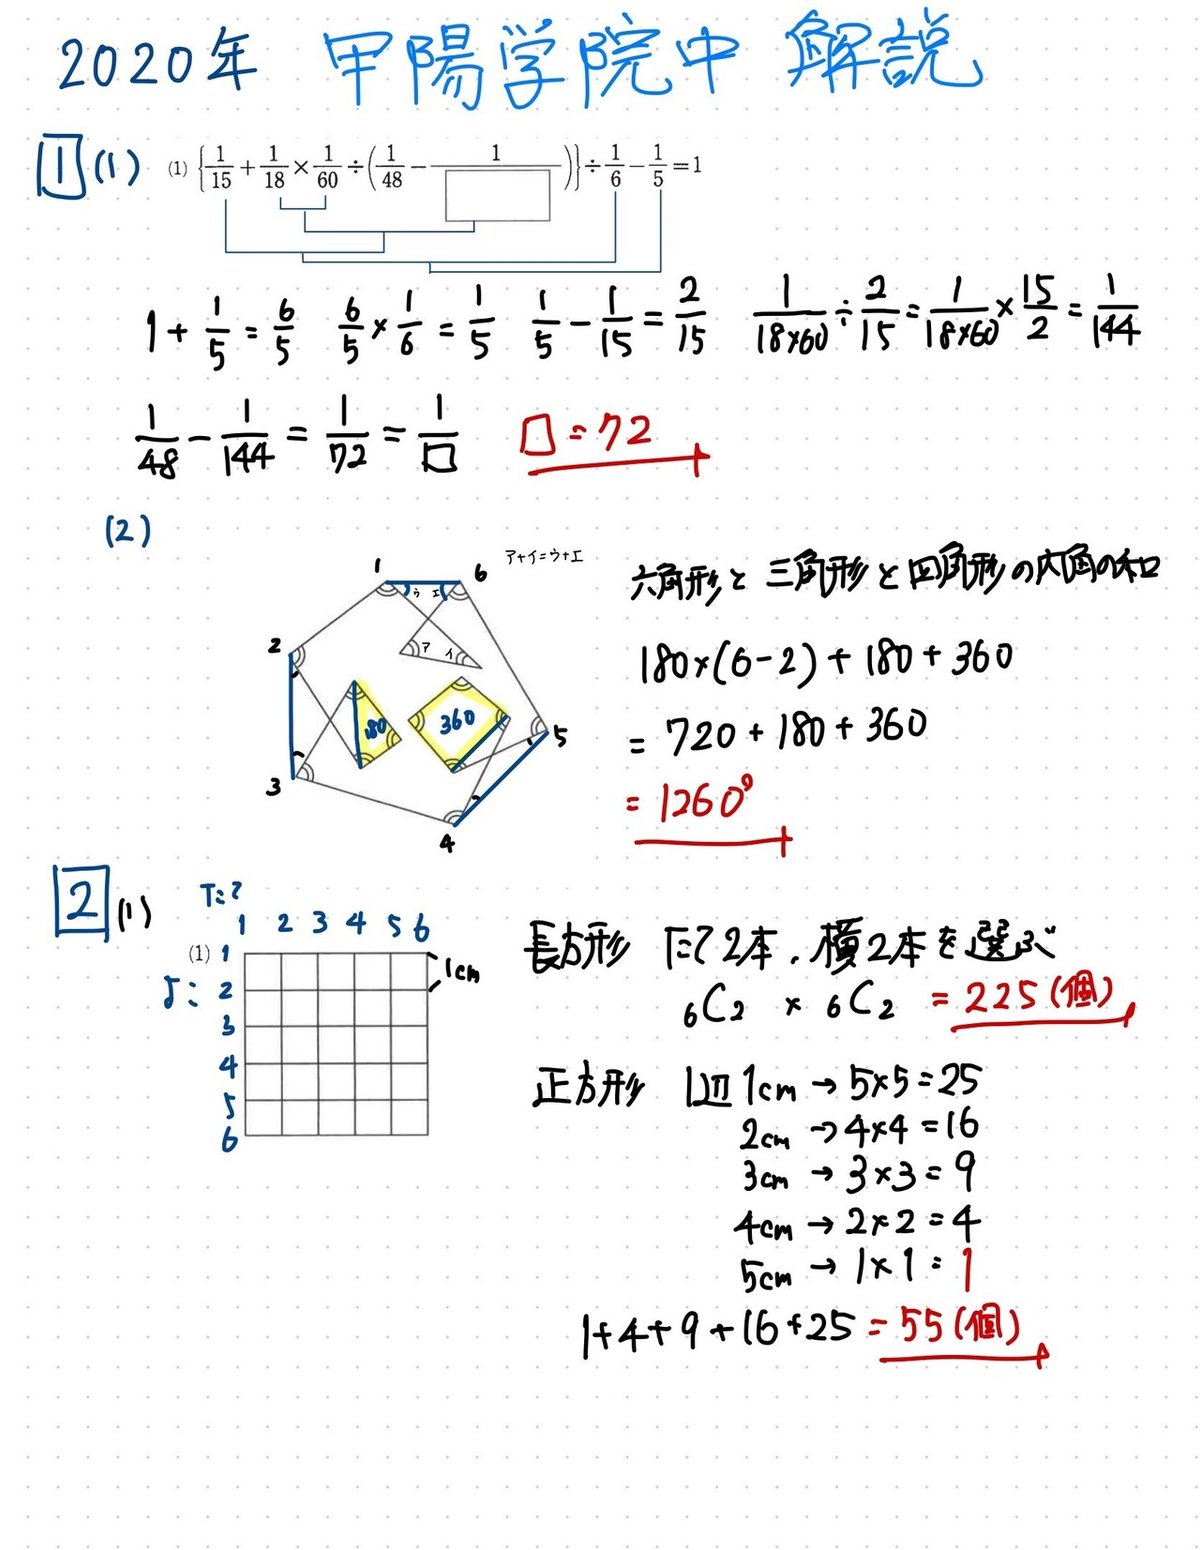 2020年 甲陽学院中 解説
1 (1) (1) {1/15 + 1/18 × 1/60 ÷ (1/48 − 1/□)} ÷ 1/6 − 1/5 = 1
1 + 1/5 = 6/5 6/5 × 1/6 = 1/5 1/5 − 1/15 = 2/15 1/18×60 ÷ 2/15 = 1/18×60 × 15/2 = 1/144
1/48 − 1/144 = 1/72 = 1/□ □ = 72
(2)
1 6 ア+イ=ウ+エ
ウ エ
ア イ
2
180 360
5
3
4
六角形と三角形と四角形の内角の和
180×(6−2)+180+360
= 720+180+360
= 1260°
2 (1) たて
1 2 3 4 5 6
(1) 1
1cm
よこ 2
3
4
5
6
長方形 たて2本、横2本を選ぶ
₆C₂ × ₆C₂ = 225(個)
正方形 1辺 1cm → 5×5=25
2cm → 4×4=16
3cm → 3×3=9
4cm → 2×2=4
5cm → 1×1=1
1+4+9+16+25 = 55(個)